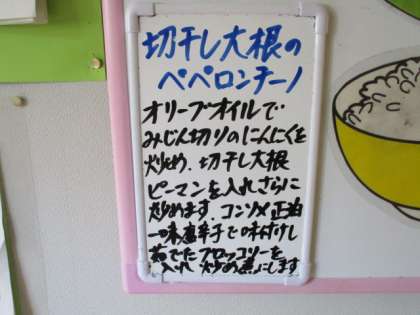 切干し大根の
ペペロンチーノ
オリーブオイルで
みじん切りのにんにくを
炒め、切干し大根
ピーマンを入れさらに
炒めます。コンソメ正油
一味唐辛子で味付けし
茹でたブロッコリーを
入れ 炒め煮にします